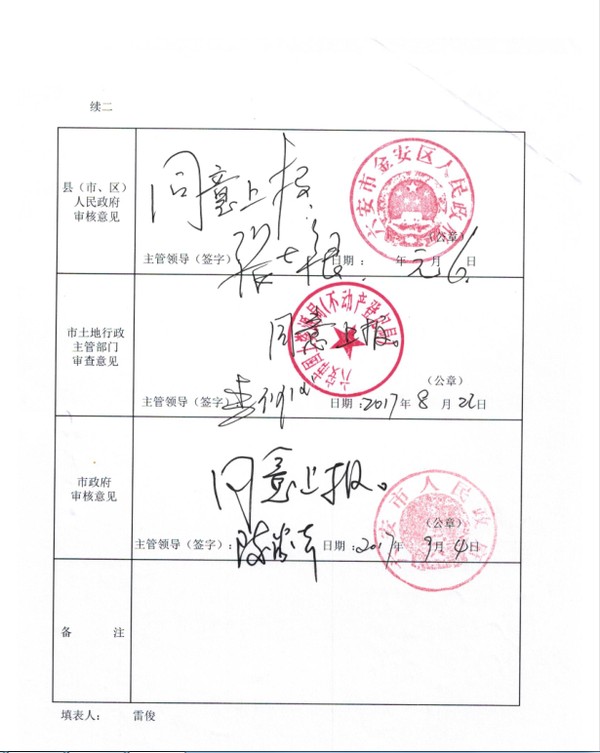 续二
县（市、区）
人民政府
审核意见
同意上报
六安市金安区人民政府
（公章）
主管领导（签字） 日期： 年 月 6 日
市土地行政
主管部门
审查意见
同意上报。
（公章）
主管领导（签字） 日期：2017年 8 月 22日
市政府
审核意见
同意上报。
六安市人民政府
（公章）
主管领导（签字）： 日期：2017年 9月 4日
备 注
填表人： 雷俊